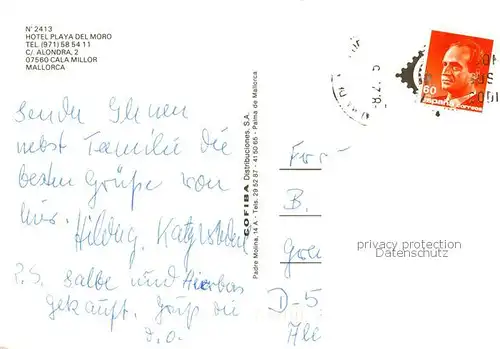 N° 2413
HOTEL PLAYA DEL MORO
TEL. (971) 58 54 11
C/ ALONDRA, 2
07560 CALA MILLOR
MALLORCA
Sende Ihnen
nebst Familie die
besten Grüße von
hier. Hildeg.
P.S. Salbe und Hierbas
gekauft. Grüß die
d.O.
COFIBA Distribuciones, S.A.
Padre Molina, 14 A - Tels. 29 52 87 - 41 50 65 - Palma de Mallorca
60
España
correos
B.
D-5
privacy protection
Datenschutz